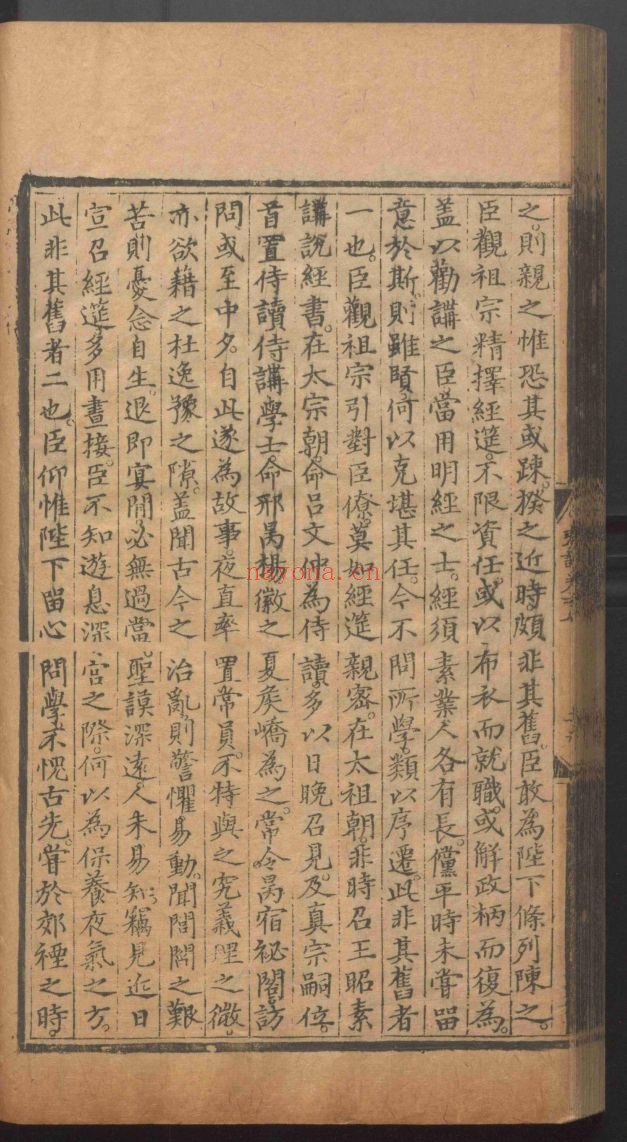 之則親之惟恐其或踈揆之近時頗非其舊臣敢為陛下條列陳之
臣觀祖宗精擇經筵不限資任或以布衣而就職或解政柄而復為
蓋以勸講之臣當用明經之士經須素業人各有長儻平時未嘗畱
意於斯則雖賢何以克堪其任今不問所學類以序遷此非其舊者
一也臣觀祖宗引對臣僚莫如經筵親密在太祖朝非時召王昭素
講說經書在太宗朝命呂文仲為侍讀多以日晚召見及真宗嗣位
首置侍讀侍講學士命邢昺楊徽之夏矦嶠為之常令昺宿祕閣訪
問或至中夕自此遂為故事夜直率置常員不特與之究義理之微
亦欲藉之杜逸豫之隙蓋聞古今之治亂則警懼易動聞閭閻之艱
苦則憂念自生退即宴閒必無過當聖謨深遠人未易知竊見近日
宣召經筵多用晝接臣不知遊息深宮之際何以為保養夜氣之方
此非其舊者二也臣仰惟陛下畱心問學不愧古先嘗於郊禋之時
nayona.cn